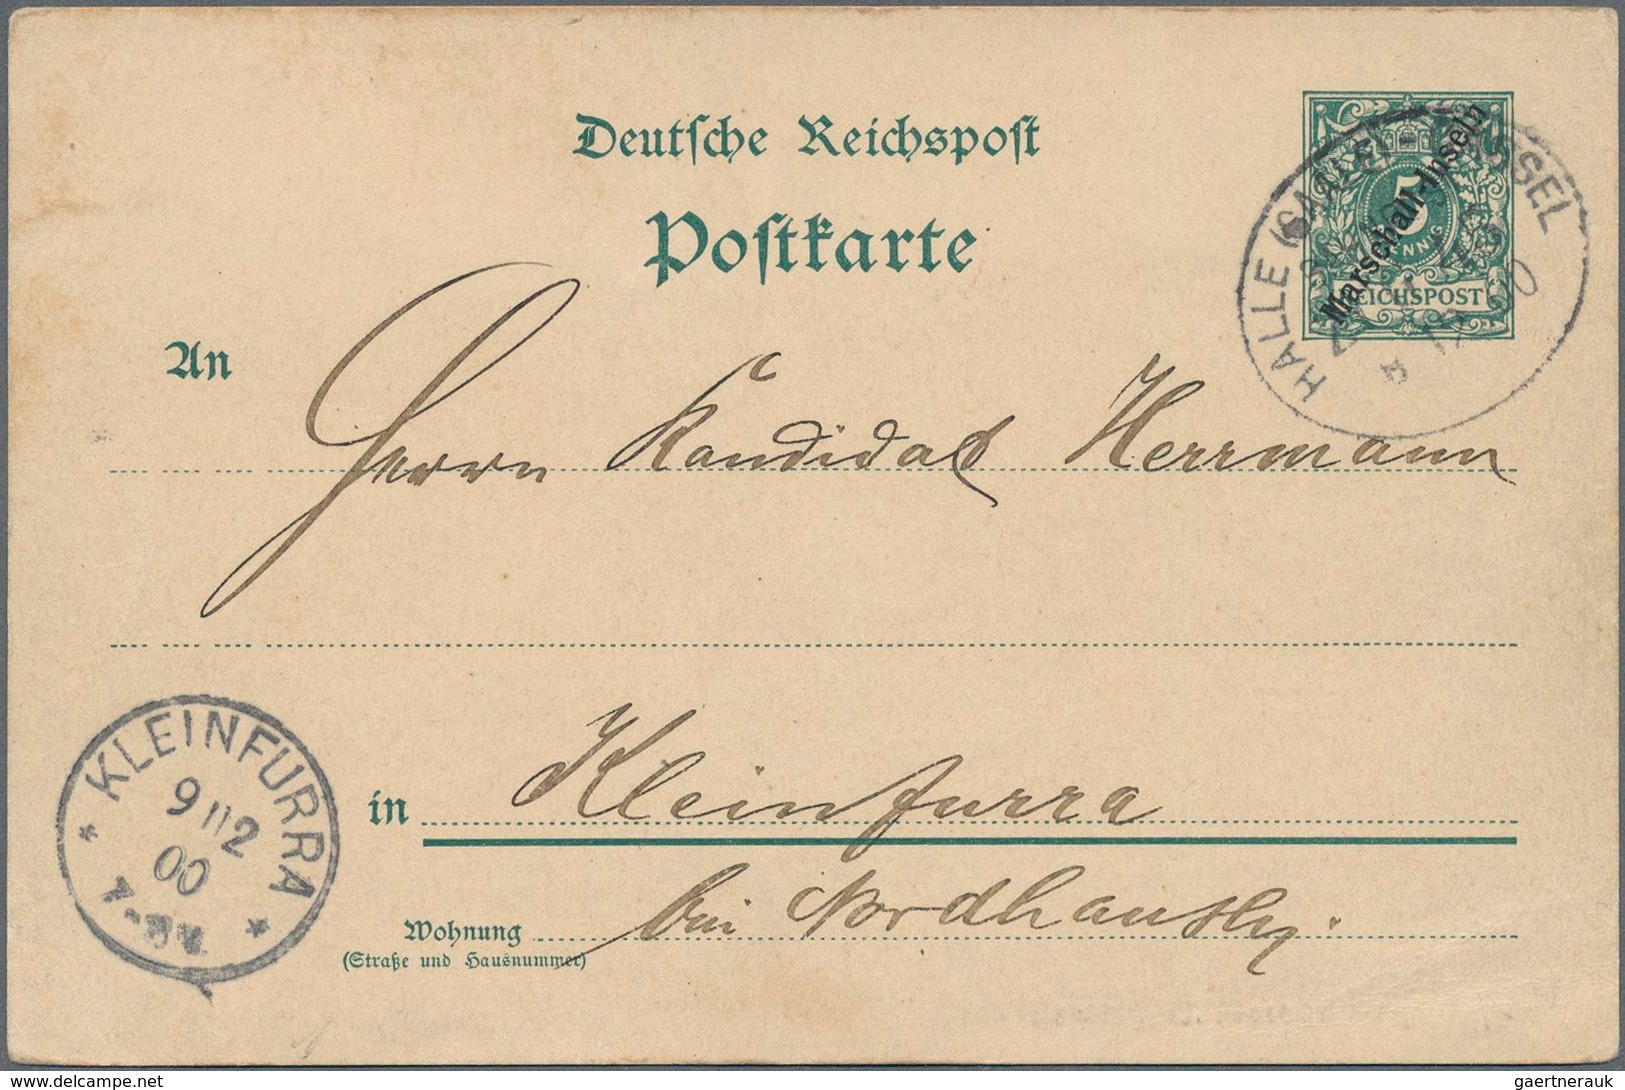 Deutsche Reichspost
Postkarte
5
REICHSPOST
Marschall-Inseln
HALLE (SAALE)
An
Herrn Kandidat Herrmann
in Kleinfurra
bei Nordhausen.
Wohnung
(Straße und Hausnummer)
KLEINFURRA
9 12
00
www.delcampe.net
gaertnerauk